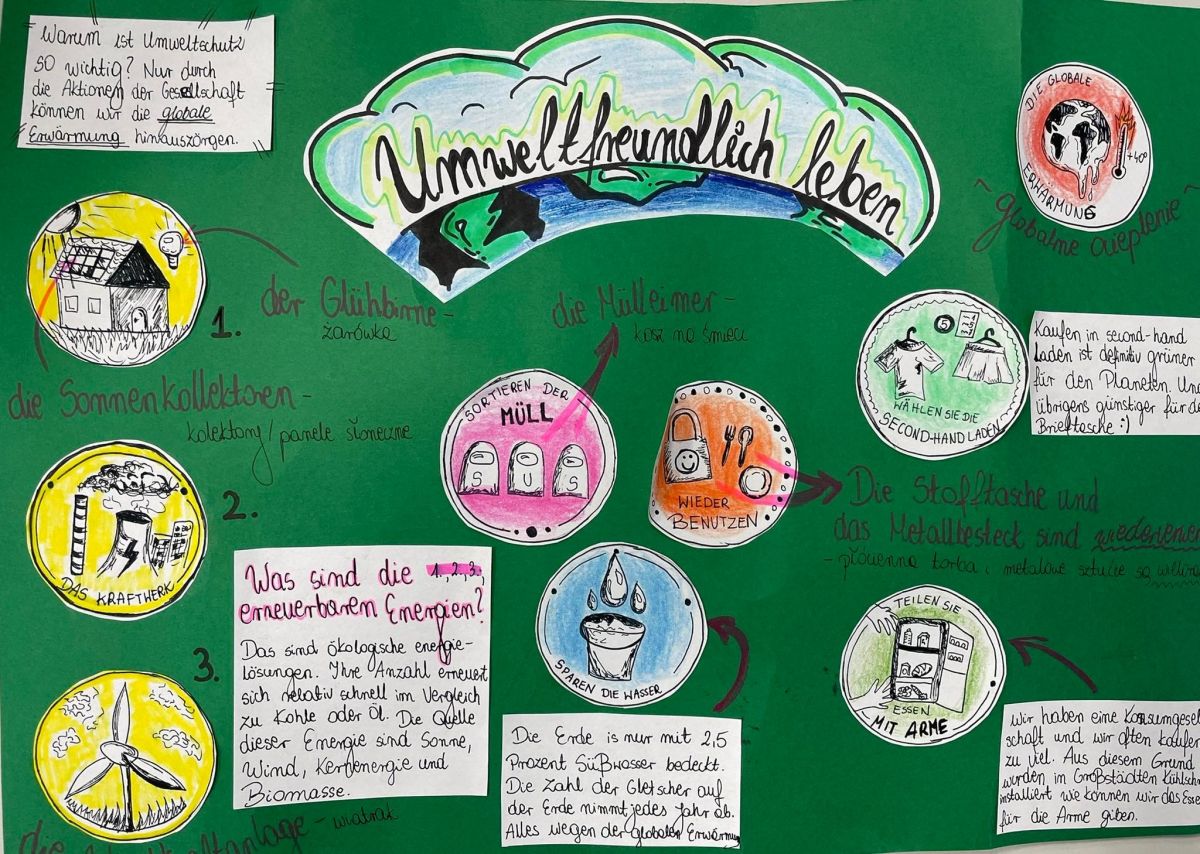 Warum ist Umweltschutz
so wichtig? Nur durch
die Aktionen der Gesellschaft
können wir die globale
Erwärmung hinauszörgen.
Umweltfreundlich leben
DIE GLOBALE
+40°
ERWÄRMUNG
globalne ocieplenie
1.
der Glühbirne -
żarówka
die Sonnenkollektoren -
kolektory/panele słoneczne
2.
DAS KRAFTWERK
3.
- wiatrak
Was sind die 1, 2, 3,
erneuerbaren Energien?
Das sind ökologische energie-
lösungen. Ihre Anzahl erneuert
sich relativ schnell im Vergleich
zu Kohle oder Öl. Die Quelle
dieser Energie sind Sonne,
Wind, Kernenergie und
Biomasse.
die Mülleimer -
kosz na śmieci
SORTIEREN DER
MÜLL
S U S
WIEDER
BENUTZEN
SPAREN DIE WASSER
Die Erde is nur mit 2,5
Prozent Süßwasser bedeckt.
Die Zahl der Gletscher auf
der Erde nimmt jedes Jahr ab.
Alles wegen der globalen Erwärmung
5
WÄHLEN SIE DIE
SECOND-HAND LADEN
Kaufen in second-hand
laden ist definitiv grüner
für den Planeten. Und
übrigens günstiger für d
Brieftasche :)
Die Stofftasche und
das Metallbesteck sind
- płócienna torba i metalowe sztućce są
TEILEN SIE
ESSEN
MIT ARME
Wir haben eine Konsumgesel
schaft und wir often kaufen
zu viel. Aus diesem Grund
wurden in Großstädten Kühlschr
installiert we können wir das Esse
für die Arme giben.